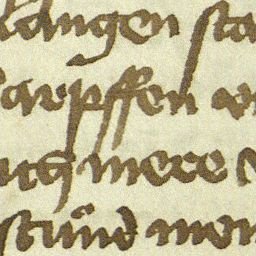 langen sta
arpffen v
uch mere
stund mon